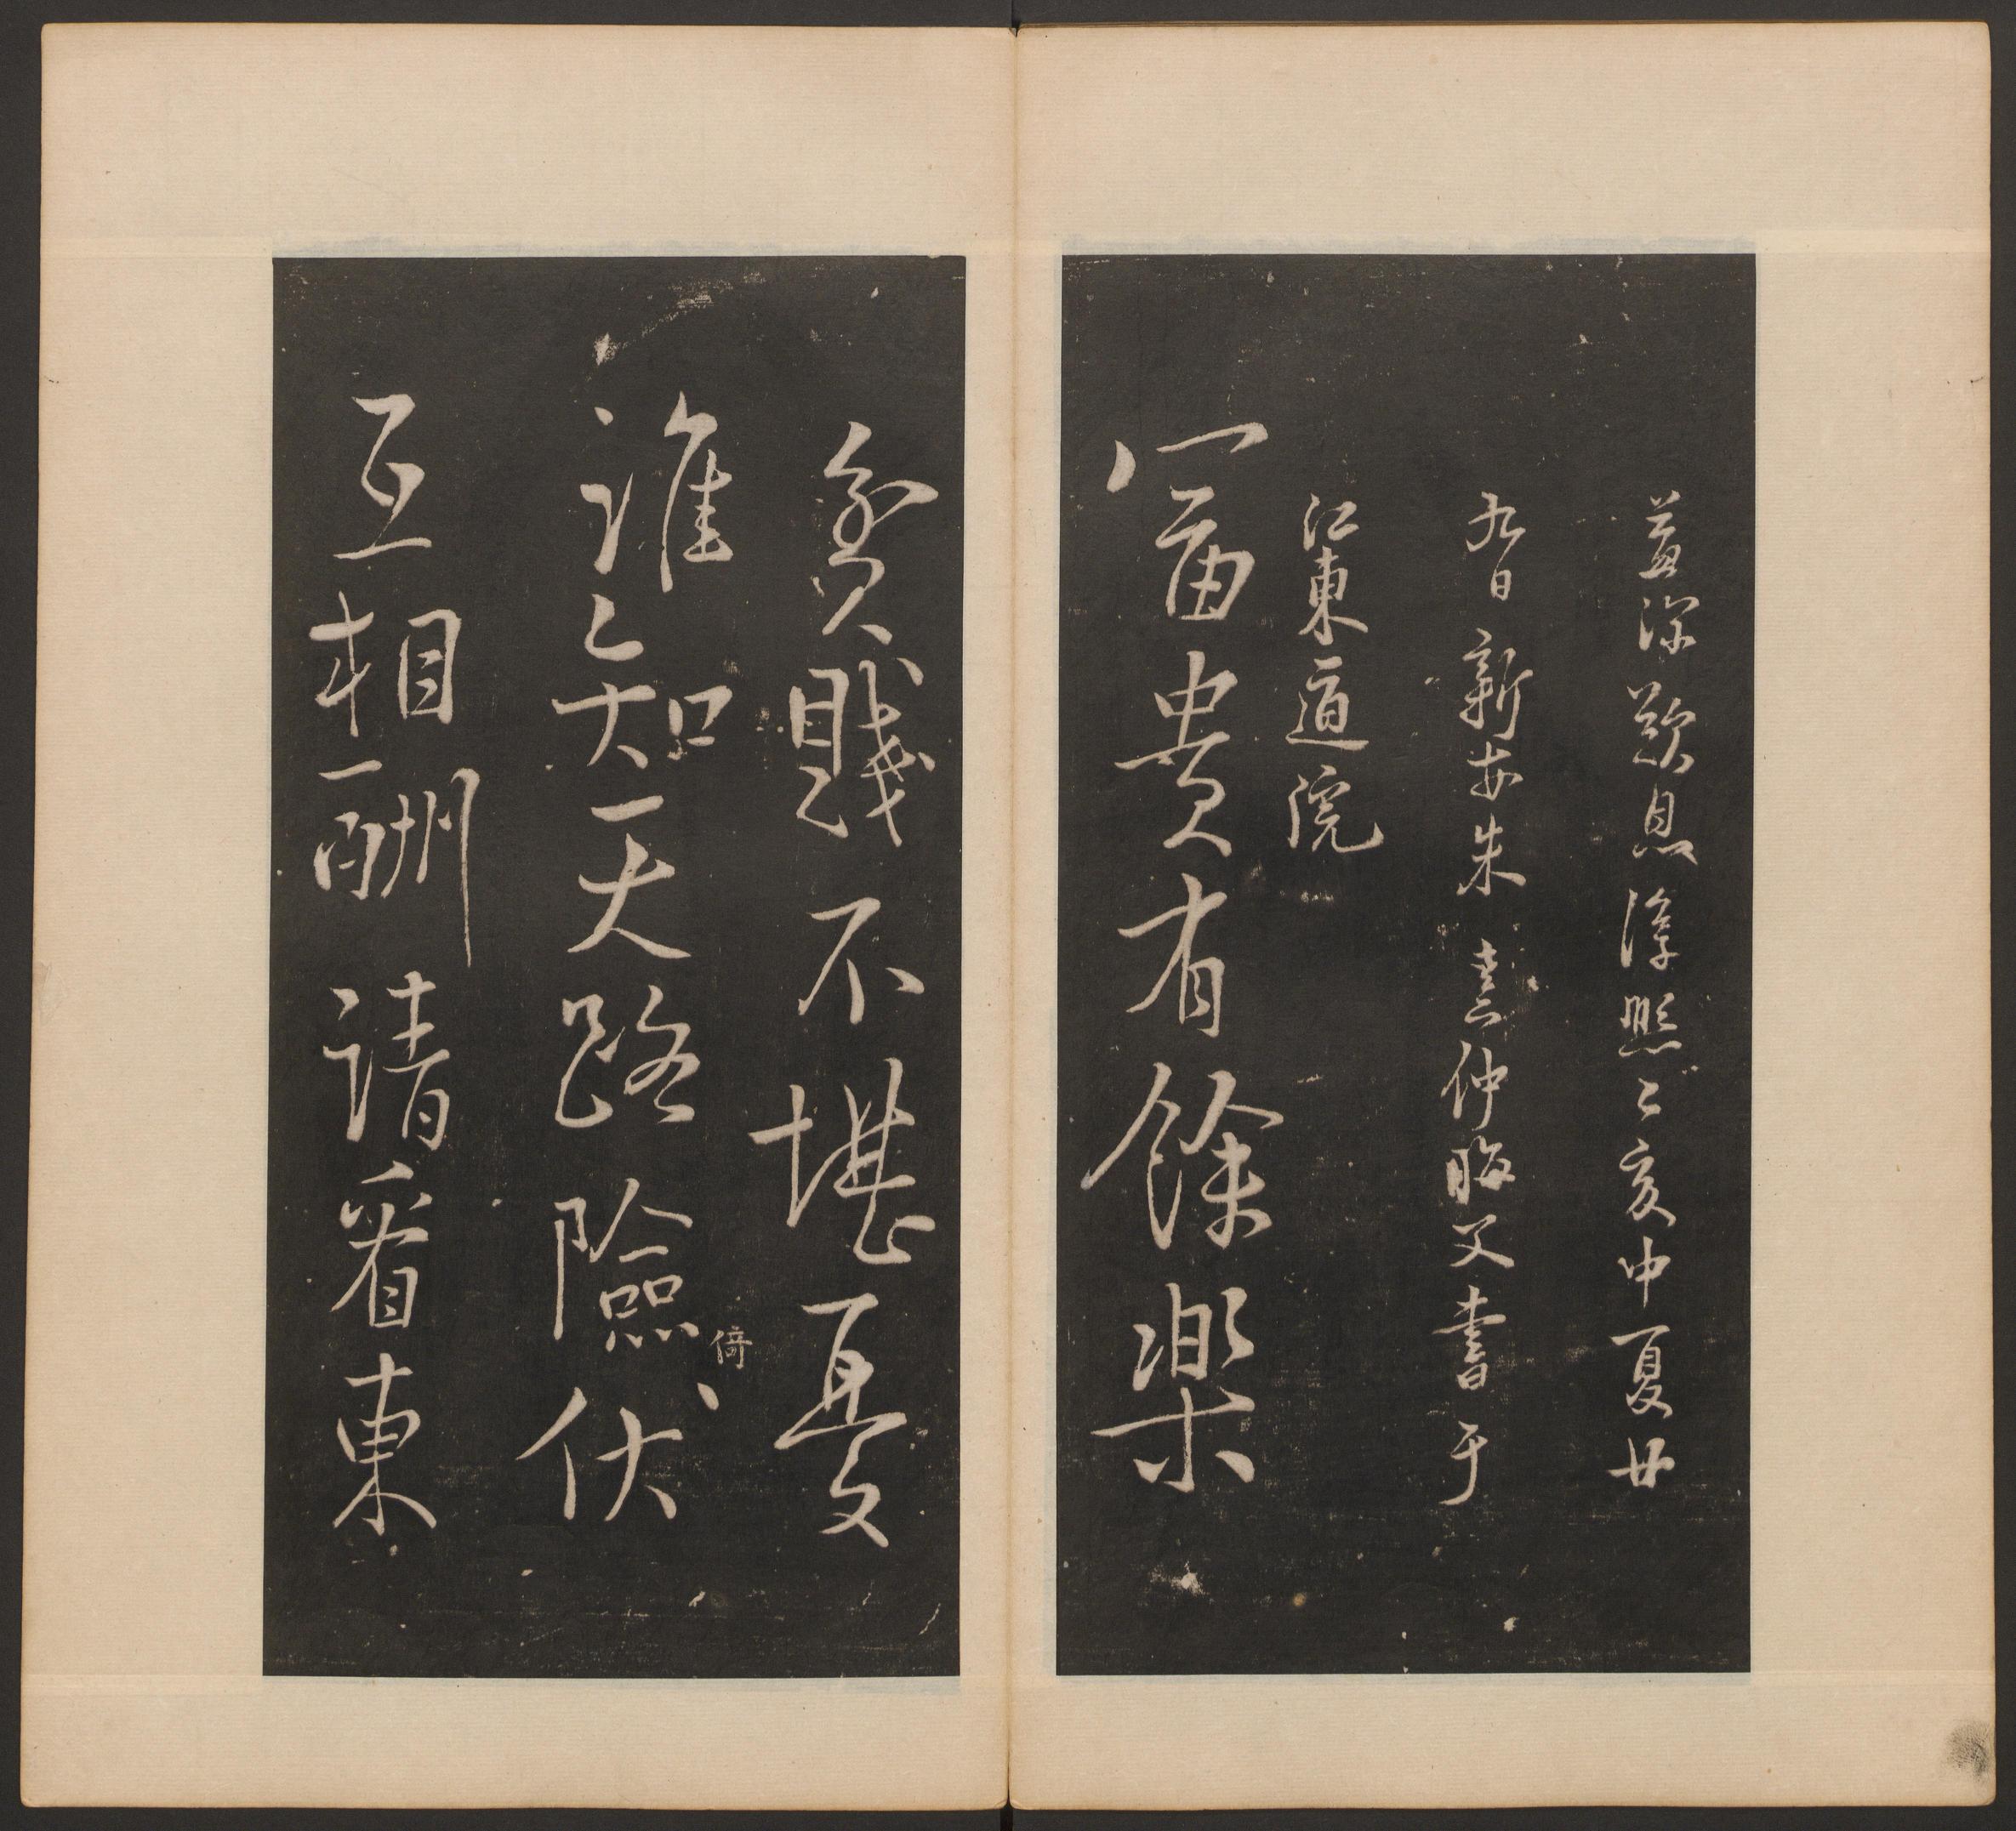 益深歎息淳熈乙亥中夏廿
九日新安朱熹仲晦父書于
江東道院
富貴有餘樂
貧賤不堪憂
誰知天路險倚伏
互相酬請看東